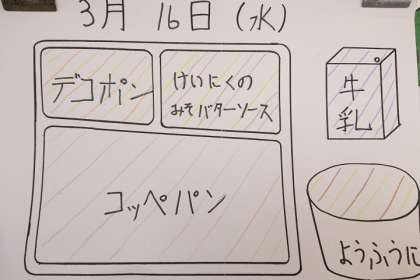 3月 16日 (水)
デコポン
けいにくの
みそバターソース
牛
乳
コッペパン
ようふうに